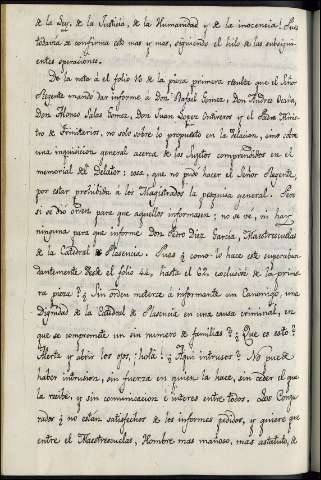 de la Ley, de la Justicia, de la Humanidad y de la inocencia! Pues
todavia se confirma esto mas y mas, siguiendo el hilo de las subsigui-
entes operaciones.
De la nota á el folio 16 de la pieza primera resulta que el Señor
Regente mando dar informe á Don Rafael Gomez, Don Andres
Don Alonso Salas Gomez, Don Juan Lopez Contreros y el Padre Minis-
tro de Trinitarios, no solo sobre lo propuesto en la delacion, sino sobre
una inquisicion general acerca de los Sujetos comprendidos en el
memorial del Delator: cosa, que no pudo hacer el Señor Regente,
por estar prohibida á los Magistrados la pesquisa general. Pero
si se dio orden para que aquellos informasen; no se vé, ni hay
ninguna para que informe Don Pedro Diaz Garcia, Maestrescuelas
de la Catedral de Plasencia. Pues ¿como lo hace este superabun-
dantemente desde el folio 44, hasta el 62. esclusivé de la prime-
ra pieza? ¿Sin orden meterse á informante un Canonigo, una
Dignidad de la Catedral de Plasencia en una causa criminal, en
que se compromete un sin numero de familias? ¿Que es esto?
Alerta y abrir los ojos; ¡hola! ¿Aqui intrusos? No puede
haber intrusion, sin fuerza en quien la hace, sin ceder el que
la recibe, y sin comunicacion é interes entre todos. Los Conju-
rados ¿no estan satisfechos de los informes pedidos, y quieren que
entre el Maestrescuelas, Hombre mas mañoso, mas astututo, de